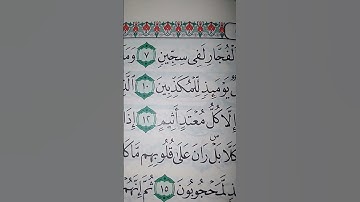 لْفُجَّارِ لَفِى سِجِّينٍ ٧ وَمَا
يَوْمَئِذٍ لِّلْمُكَذِّبِينَ ١٠
إِلَّا كُلُّ مُعْتَدٍ أَثِيمٍ ١٢ إِذَا
كَلَّا بَلْ رَانَ عَلَىٰ قُلُوبِهِم مَّا كَا
لَّمَحْجُوبُونَ ١٥ ثُمَّ إِنَّهُمْ